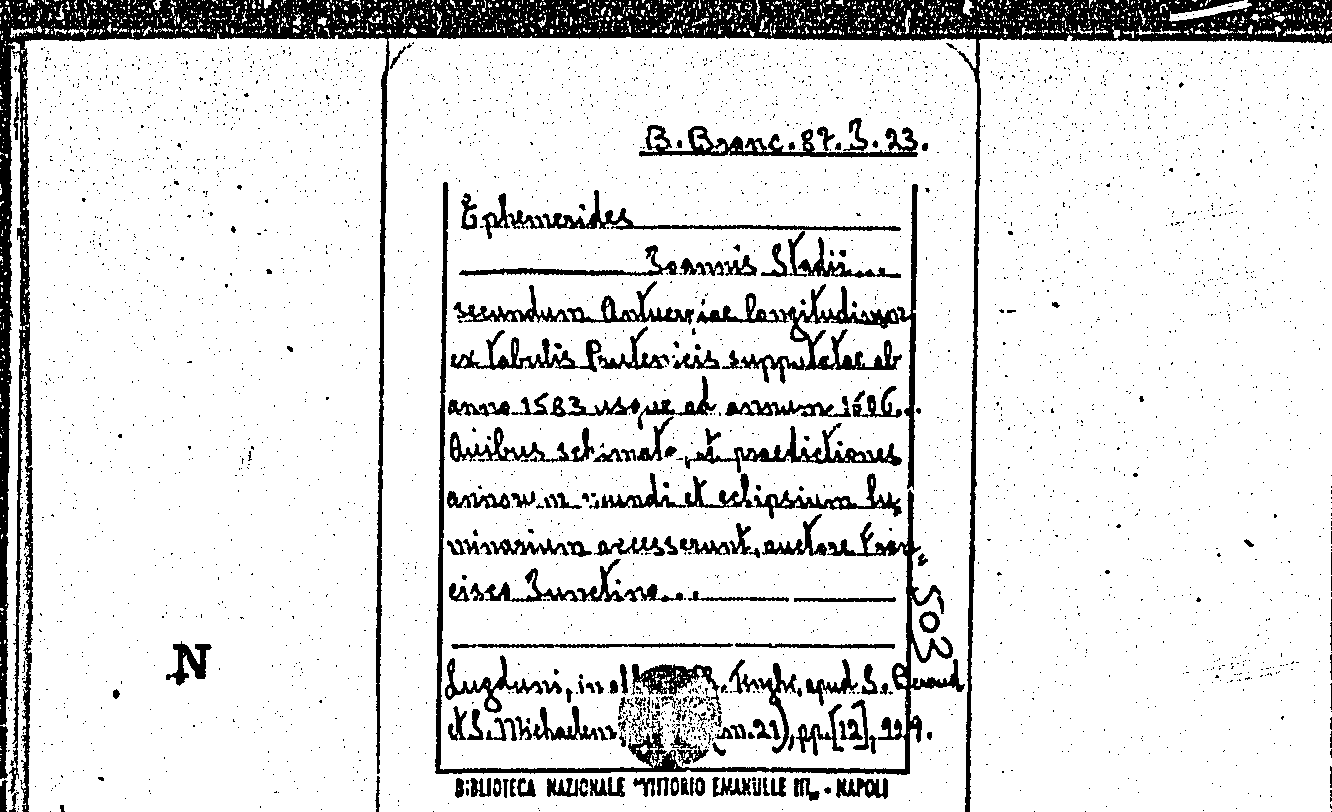 B. Branc. 87. I. 23.
Ephemerides
Ioannis Stadii...
secundum Antuerpiae longitudinem
ex tabulis Prutenicis supputatae ab
anno 1583 usque ad annum 1606...
Quibus schimata, et praedictiones
annorum mundi et eclipsium lu-
minarium accesserunt, auctore Fran-
cisco Iunctino...
503
Lugduni, in Tinghi, apud S. Beraud
et S. Michaelem 21), pp. [12],
BIBLIOTECA NAZIONALE "VITTORIO EMANUELE III„ - NAPOLI
N